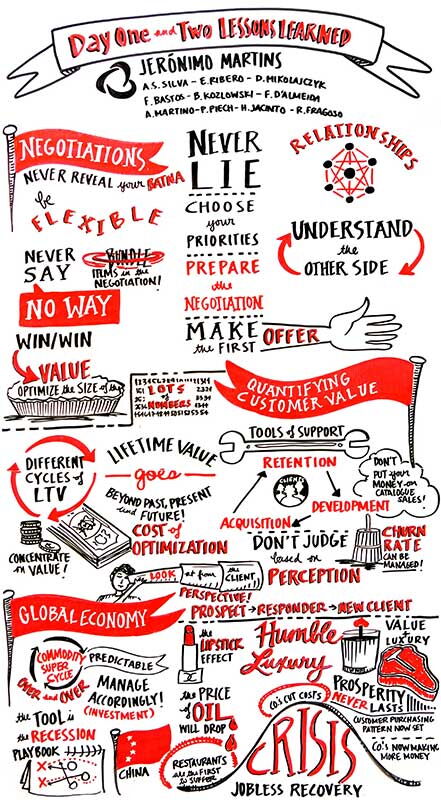 DAY ONE and TWO LESSONS LEARNED
JERÓNIMO MARTINS
A.S. SILVA - E. RIBERO - D. MIKOLAJCZYK
F. BASTOS - B. KOZLOWSKI - F. D'ALMEIDA
A. MARTINO - P. PIECH - H. JACINTO - R. FRAGOSO
NEGOTIATIONS
NEVER REVEAL your BATNA
be
FLEXIBLE
NEVER
SAY
BUNDLE
ITEMS in the
NEGOTIATION!
NO WAY
WIN/WIN
VALUE
OPTIMIZE the SIZE of the
NEVER
LIE
CHOOSE
your
PRIORITIES
PREPARE
the
NEGOTIATION
MAKE
the FIRST
OFFER
RELATIONSHIPS
UNDERSTAND
the
OTHER SIDE
LOTS
of
NUMBERS
QUANTIFYING
CUSTOMER VALUE
DIFFERENT
CYCLES of
LTV
LIFETIME VALUE
goes
BEYOND PAST, PRESENT
and FUTURE!
COST of
OPTIMIZATION
CONCENTRATE
on VALUE!
TOOLS of SUPPORT
RETENTION
CLIENT
DEVELOPMENT
ACQUISITION
DON'T
PUT your
MONEY on
CATALOGUE
SALES!
DON'T JUDGE
based on
PERCEPTION
CHURN
RATE
CAN BE
MANAGED!
LOOK at from the CLIENT,
PERSPECTIVE!
PROSPECT → RESPONDER → NEW CLIENT
GLOBAL ECONOMY
COMMODITY
SUPER
CYCLE
OVER and OVER
PREDICTABLE
MANAGE
ACCORDINGLY!
(INVESTMENT)
the TOOL is
the RECESSION
PLAY BOOK
CHINA
the
LIPSTICK
EFFECT
Humble
Luxury
the PRICE
of OIL
WILL DROP
RESTAURANTS
are the FIRST
to SUFFER
VALUE
LUXURY
PROSPERITY
NEVER
LASTS
CUSTOMER PURCHASING
PATTERN NOW SET
CO'S CUT COSTS
CO'S NOW MAKING
MORE MONEY
CRISIS
JOBLESS RECOVERY